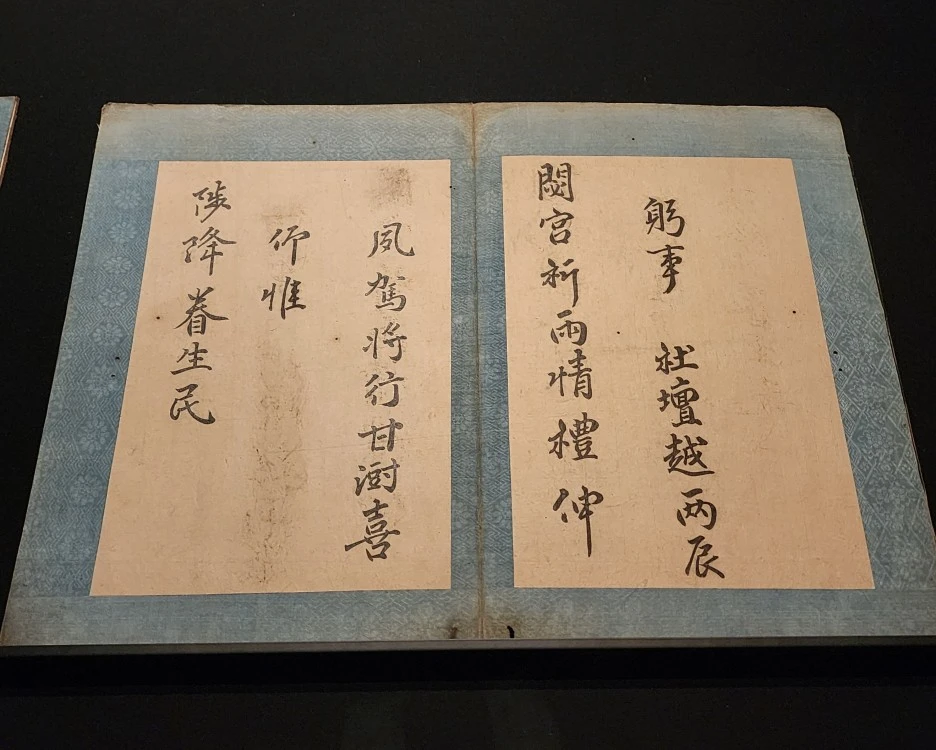 躬事 社壇越两辰
閟宮祈雨情禮伸
夙駕将行甘澍喜
仰惟
陟降眷生民